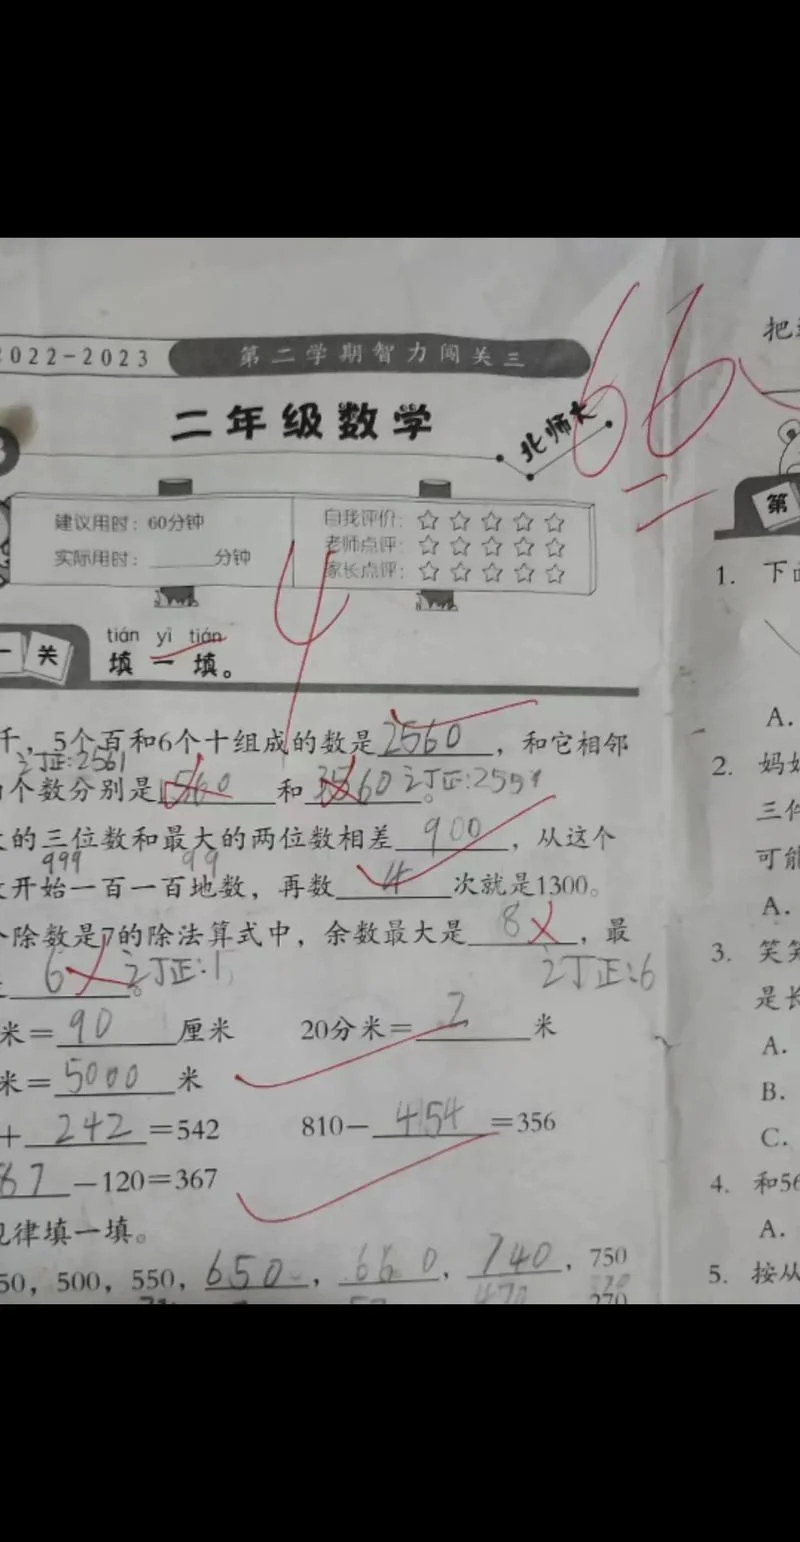 2022-2023 第二学期智力闯关三
66
二年级数学
北师大
建议用时：60分钟
实际用时：______分钟
自我评价：☆☆☆☆☆
老师点评：☆☆☆☆☆
家长点评：☆☆☆☆☆
4
关
tián yì tián
填一填。
千，5个百和6个十组成的数是2560，和它相邻
订正:2561
个数分别是1560和3560。订正:2559
的三位数和最大的两位数相差900，从这个
999 99
开始一百一百地数，再数4次就是1300。
除数是7的除法算式中，余数最大是8，最
6。订正:1 订正:6
米＝90厘米 20分米＝2米
米＝5000米
＋242＝542 810－454＝356
67－120＝367
律填一填。
50，500，550，650，660，740，750
470
270
第
1. 下
A.
2. 妈
三件
可能
A.
3. 笑笑
是长
A.
B.
C.
4. 和56
A.
5. 按从